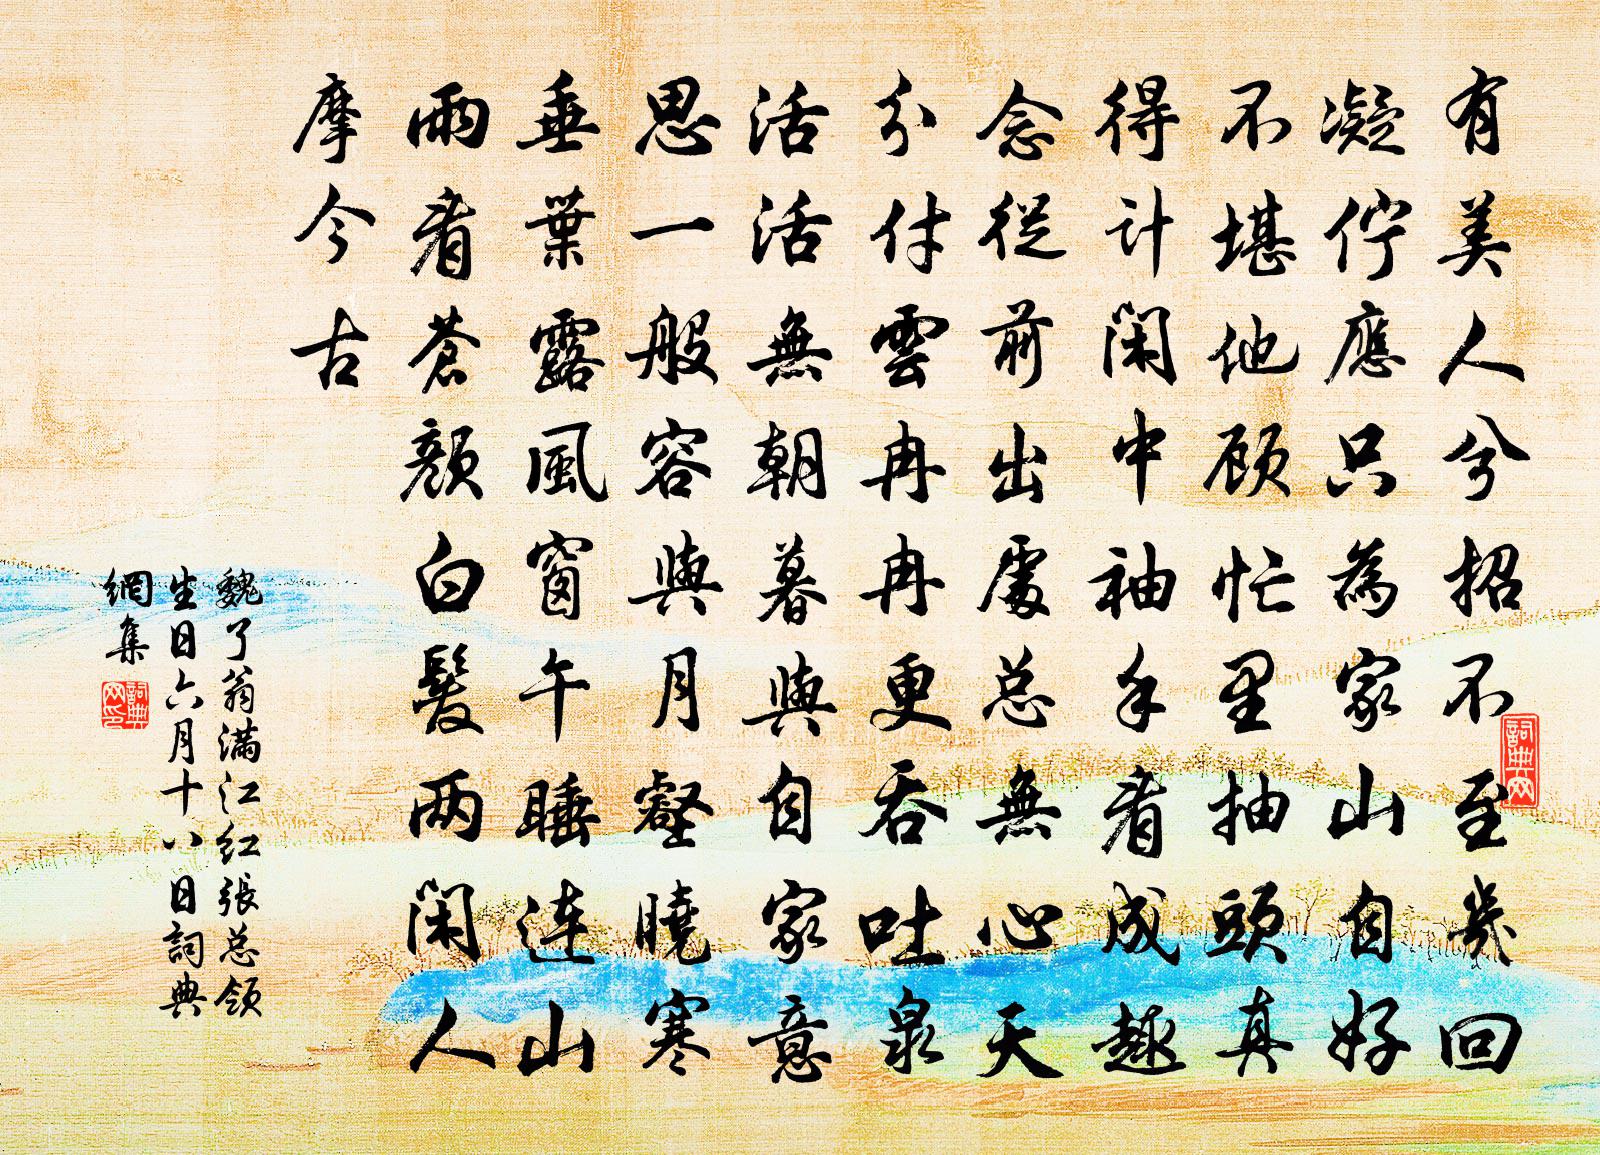 有美人兮招不至幾回
凝佇應只為家山自好
不堪他顾忙里抽頭真
得计闲中袖手看成趣
念從前出處总無心天
分付雲冉冉更吞吐泉
活活無朝暮與自家意
思一般容與月壑曉寒
垂葉露風窗午睡连山
雨看蒼颜白髮两闲人
摩今古
魏了翁满江红張总领
生日六月十八日詞典
網集
詞典网印
詞典网